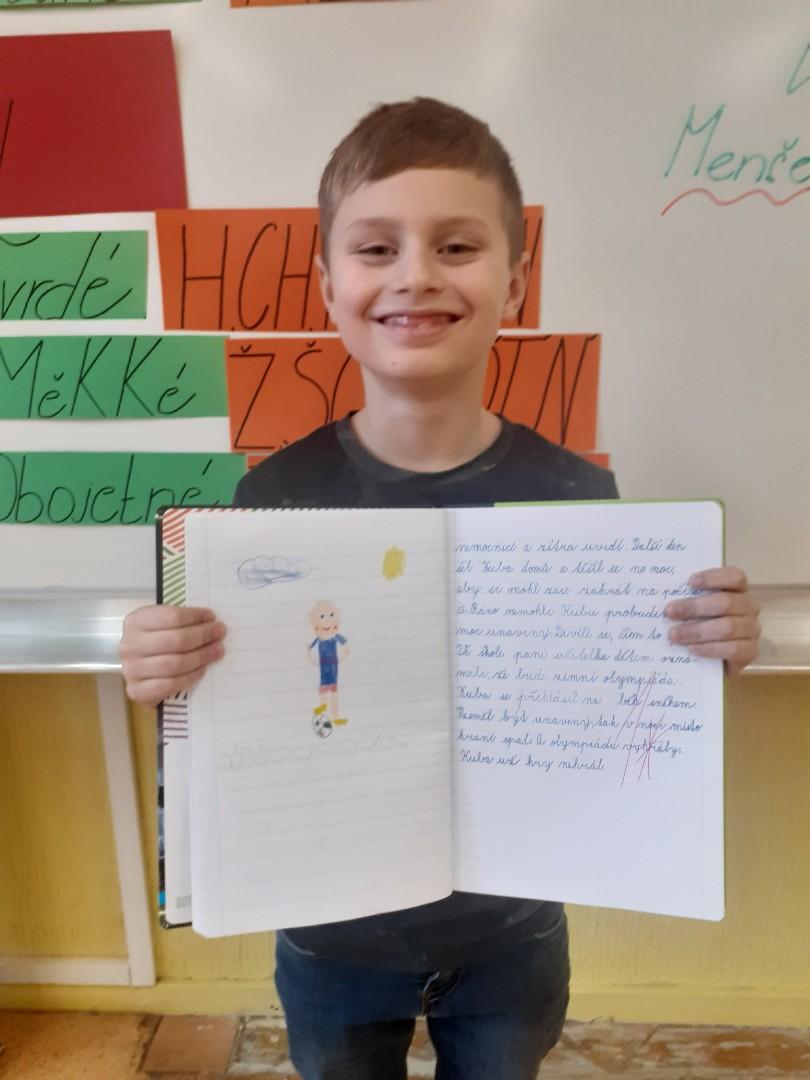 vrdé
H.CH.
Měkké
Ž.Š
Obojetné
Menše
nemocnici a zítra uvidí. Další den
šel Kuba domů a těšil se na noc,
aby si mohl zase zahrát na
a. Ráno nemohli Kubu
moc unavený. Divili se, čím to
Ve škole paní učitelka dětem ozná-
mila, že bude zimní olympiáda.
Kuba se přihlásil na běh sněhem.
Nesměl být unavený, tak v noci místo
hraní spal. A olympiádu vyhrály.
Kuba už hry nehrál.